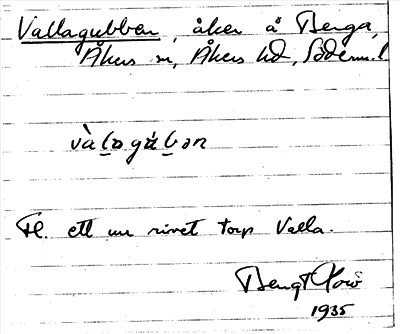 Vallagubben, åker å Berga,
Åkers sn, Åkers hd, Söderm. l
vàlagúbən
Fl. ett nu rivet torp Valla.
Bengt
1935